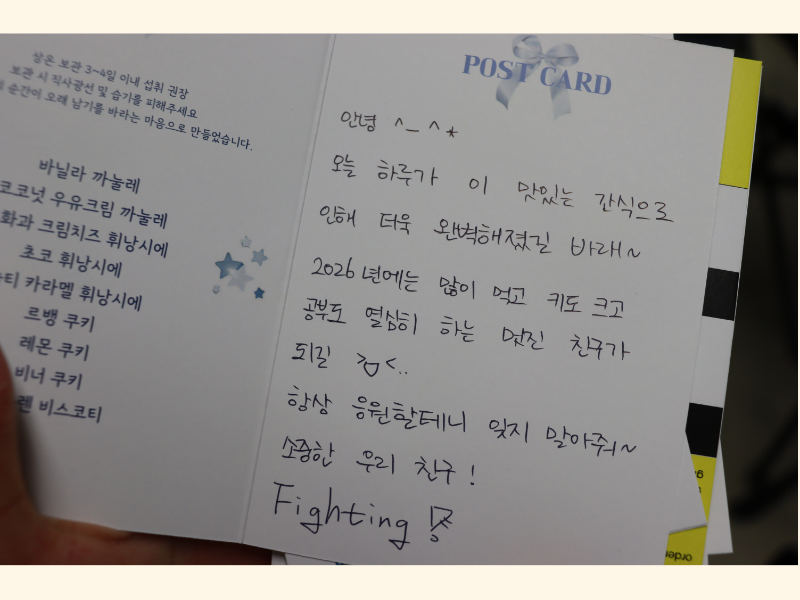 상온 보관 3~4일 이내 섭취 권장
보관 시 직사광선 및 습기를 피해주세요
순간이 오래 남기를 바라는 마음으로 만들었습니다.
바닐라 까눌레
코코넛 우유크림 까눌레
화과 크림치즈 휘낭시에
초코 휘낭시에
티 카라멜 휘낭시에
르뱅 쿠키
레몬 쿠키
비너 쿠키
렌 비스코티
POST CARD
안녕 ^_^*
오늘 하루가 이 맛있는 간식으로
인해 더욱 완벽해졌길 바래~
2026년에는 많이 먹고 키도 크고
공부도 열심히 하는 멋진 친구가
되길 >ㅁ<..
항상 응원할테니 잊지 말아줘~
소중한 우리 친구!
Fighting!
order